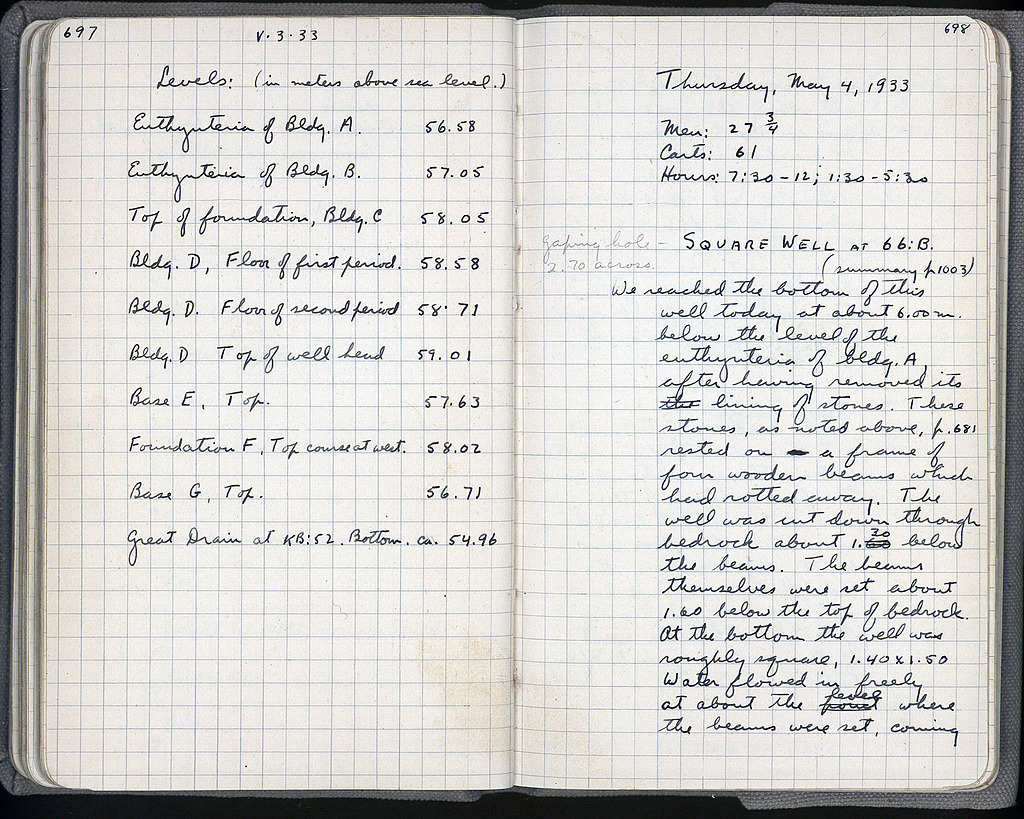 697
V.3.33
Levels: (in meters above sea level.)
Euthynteria of Bldg. A. 56.58
Euthynteria of Bldg. B. 57.05
Top of foundation, Bldg. C 58.05
Bldg. D, Floor of first period. 58.58
Bldg. D. Floor of second period 58.71
Bldg. D Top of well head 59.01
Base E, Top. 57.63
Foundation F, Top course at west. 58.02
Base G, Top. 56.71
Great Drain at KB:52. Bottom. ca. 54.96
698
Thursday, May 4, 1933
Men: 27 3/4
Carts: 61
Hours: 7:30 - 12; 1:30 - 5:30
gaping hole -
2.70 across.
SQUARE WELL AT 66:B.
(summary p.1003)
We reached the bottom of this
well today at about 6.00 m.
below the level of the
euthynteria of bldg. A,
after having removed its
the lining of stones. These
stones, as noted above, p.681
rested on a frame of
four wooden beams which
had rotted away. The
well was cut down through
bedrock about 1.30 below
the beams. The beams
themselves were set about
1.60 below the top of bedrock.
At the bottom the well was
roughly square, 1.40 x 1.50
Water flowed in freely
at about the point level where
the beams were set, coming